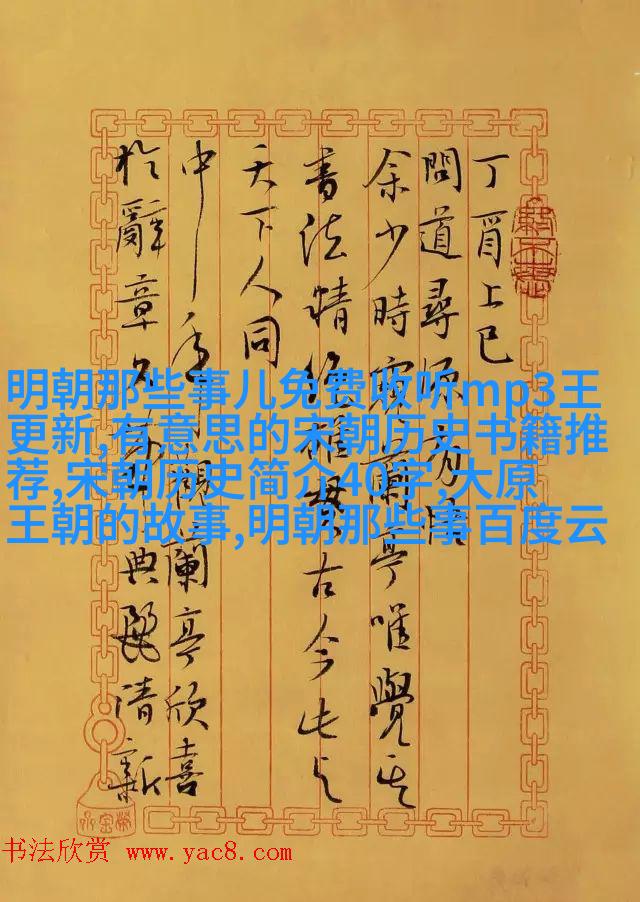 丁酉上巳
問道尋源
余少時蘭亭唯覺其
書法精絕雄古今此与
天下人同
中年觀蘭亭欣喜
於辭章典麗清新
明朝那些事儿免费收听mp3王
更新,有意思的宋朝历史书籍推
荐,宋朝历史简介40字,大原
王朝的故事,明朝那些事百度云
书法欣赏 www.yac8.com